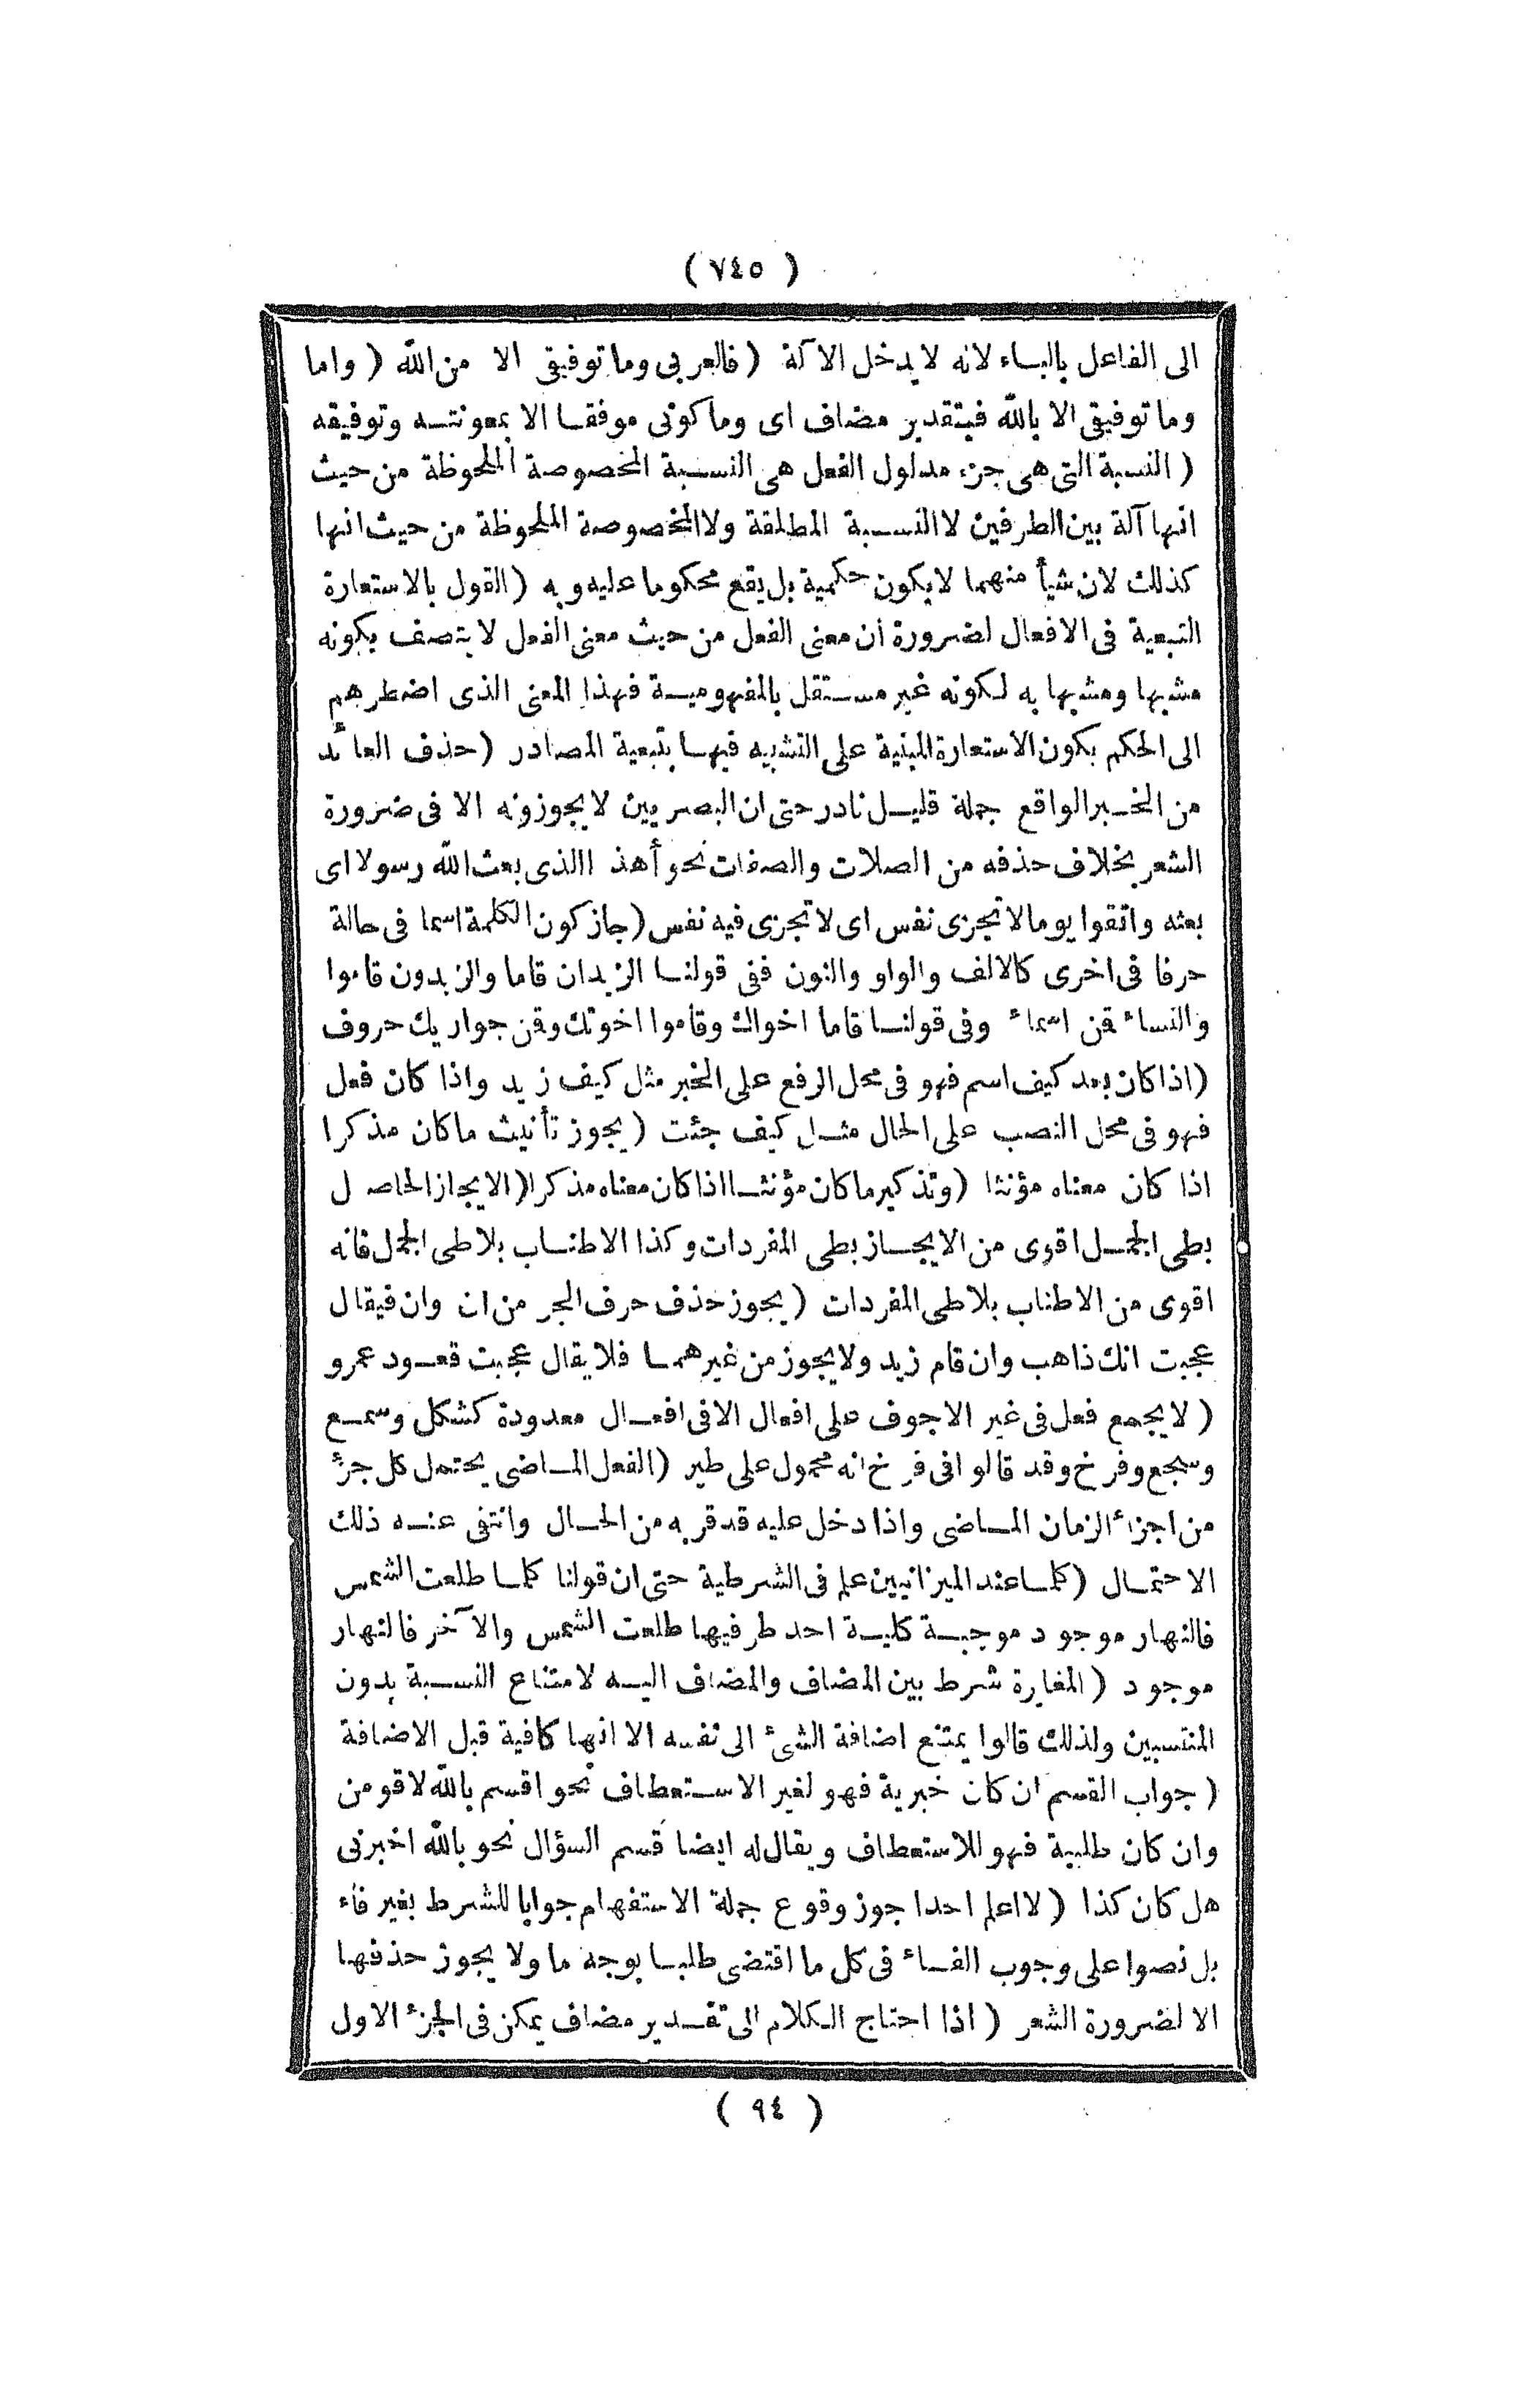 ( ٧٤٥ )
الى الفاعل بالباء لانه لا يدخل الا آلة ( فالعربى وما توفيقى الا من الله ( واما
وما توفيقى الا بالله فبتقدير مضاف اى وما كونى موفقا الا بمعونته وتوفيقه
( النسبة التى هى جزء مدلول الفعل هى النسبة المخصوصة الملحوظة من حيث
انها آلة بين الطرفين لا النسبة المطلقة ولا المخصوصة الملحوظة من حيث انها
كذلك لان شيأ منهما لا يكون حكمية بل يقع محكوما عليه وبه ( القول بالاستعارة
التبعية فى الافعال لضرورة ان معنى الفعل من حيث معنى الفعل لا يتصف بكونه
مشبها ومشبها به لكونه غير مستقل بالمفهومية فهذا المعنى الذى اضطرهم
الى الحكم بكون الاستعارة المبنية على التشبيه فيها بتبعية المصادر ( حذف العائد
من الخبر الواقع جملة قليل نادر حتى ان البصريين لا يجوزونه الا فى ضرورة
الشعر بخلاف حذفه من الصلات والصفات نحو أهذا الذى بعث الله رسولا اى
بعثه واتقوا يوما لا تجزى نفس اى لا تجزى فيه نفس ( جاز كون الكلمة اسما فى حالة
حرفا فى اخرى كالالف والواو والنون ففى قولنا الزيدان قاما والزيدون قاموا
والنساء قمن اسماء وفى قولنا قاما اخواك وقاموا اخوتك وقمن جواريك حروف
( اذا كان بعد كيف اسم فهو فى محل الرفع على الخبر مثل كيف زيد واذا كان فعل
فهو فى محل النصب على الحال مثل كيف جئت ( يجوز تأنيث ما كان مذكرا
اذا كان معناه مؤنثا ( وتذكير ما كان مؤنثا اذا كان معناه مذكرا ( الايجاز الحاصل
بطى الجمل اقوى من الايجاز بطى المفردات وكذا الاطناب بلا طى الجمل فانه
اقوى من الاطناب بلا طى المفردات ( يجوز حذف حرف الجر من ان وان فيقال
عجبت انك ذاهب وان قام زيد ولا يجوز من غيرهما فلا يقال عجبت قعود عمرو
( لا يجمع فعل فى غير الاجوف على افعال الا فى افعال معدودة كشكل وسمع
وسجع وفرخ وقد قالوا فى فرخ انه محمول على طير ( الفعل الماضى يحتمل كل جزء
من اجزاء الزمان الماضى واذا دخل عليه قد قربه من الحال وانتفى عنه ذلك
الاحتمال ( كلما عند الميزانيين علم فى الشرطية حتى ان قولنا كلما طلعت الشمس
فالنهار موجود موجبة كلية احد طرفيها طلعت الشمس والآخر فالنهار
موجود ( المغايرة شرط بين المضاف والمضاف اليه لامتناع النسبة بدون
المنتسبين ولذلك قالوا يمتنع اضافة الشئ الى نفسه الا انها كافية قبل الاضافة
( جواب القسم ان كان خبرية فهو لغير الاستعطاف نحو اقسم بالله لاقومن
وان كان طلبية فهو للاستعطاف ويقال له ايضا قسم السؤال نحو بالله اخبرنى
هل كان كذا ( لا اعلم احدا جوز وقوع جملة الاستفهام جوابا للشرط بغير فاء
بل نصوا على وجوب الفاء فى كل ما اقتضى طلبا بوجه ما ولا يجوز حذفها
الا لضرورة الشعر ( اذا احتاج الكلام الى تقدير مضاف يمكن فى الجزء الاول
( ٩٤ )